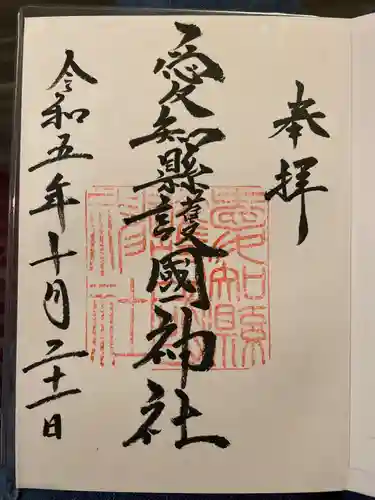 奉拝
愛知縣護國神社
令和五年十月二十一日
愛知縣
護國神
社